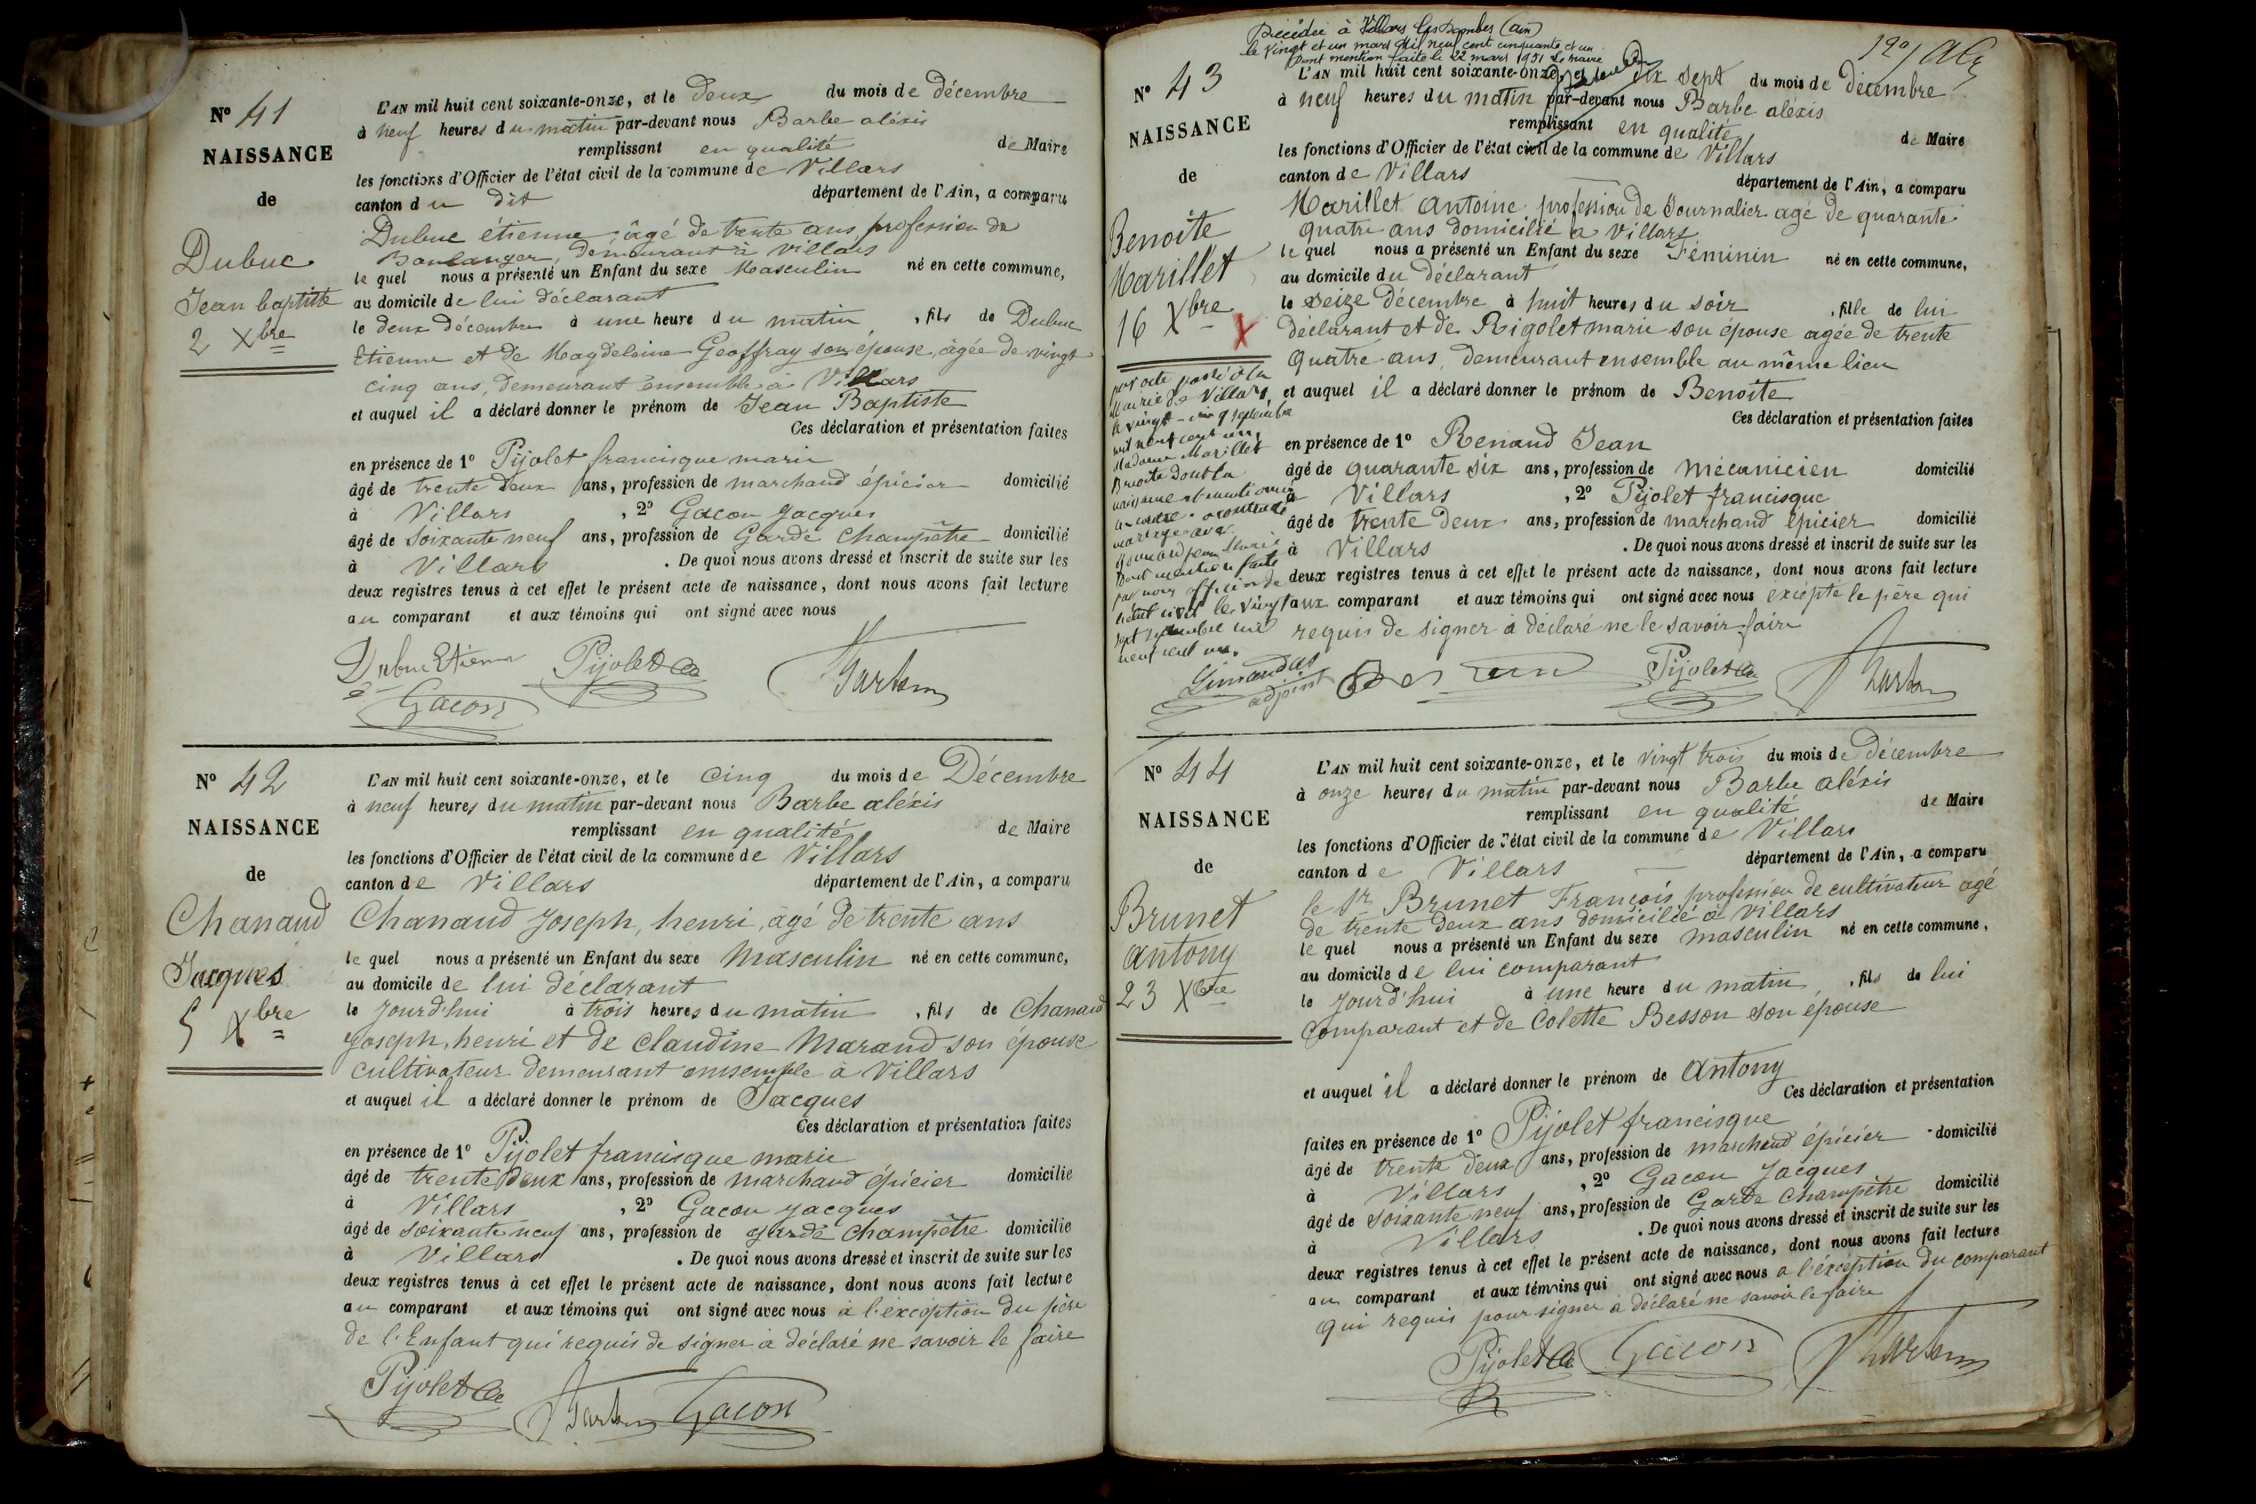 N° 41
NAISSANCE
de
Dubuc
Jean baptiste
2 Xbre
L'AN mil huit cent soixante-onze, et le deux du mois de décembre
à neuf heures du matin par-devant nous Barbe aléxis
remplissant en qualité de Maire
les fonctions d'Officier de l'état civil de la commune de Villars
canton du dit département de l'Ain, a comparu
Dubuc étienne âgé de trente ans profession de
Boulanger, demeurant à Villars
le quel nous a présenté un Enfant du sexe Masculin né en cette commune,
au domicile de lui déclarant
le deux décembre à une heure du matin, fils de Dubuc
Etienne et de Magdeleine Geoffray son épouse, âgée de vingt
cinq ans, demeurant ensemble à Villars
et auquel il a déclaré donner le prénom de Jean Baptiste
Ces déclaration et présentation faites
en présence de 1° Pijolet francisque marie
âgé de trente deux ans, profession de marchand épicier domicilié
à Villars, 2° Gacon Jacques
âgé de soixante neuf ans, profession de Garde Champêtre domicilié
à Villars. De quoi nous avons dressé et inscrit de suite sur les
deux registres tenus à cet effet le présent acte de naissance, dont nous avons fait lecture
au comparant et aux témoins qui ont signé avec nous
Dubuc Etienne Pijolet
Gacon
N° 42
NAISSANCE
de
Chanaud
Jacques
5 Xbre
L'AN mil huit cent soixante-onze, et le cinq du mois de Décembre
à neuf heures du matin par-devant nous Barbe aléxis
remplissant en qualité de Maire
les fonctions d'Officier de l'état civil de la commune de Villars
canton de Villars département de l'Ain, a comparu
Chanaud Joseph, henri, âgé de trente ans
le quel nous a présenté un Enfant du sexe Masculin né en cette commune,
au domicile de lui déclarant
le jourd'hui à trois heures du matin, fils de Chanaud
Joseph, henri et de Claudine Marand son épouse
cultivateur demeurant ensemple à Villars
et auquel il a déclaré donner le prénom de Jacques
Ces déclaration et présentation faites
en présence de 1° Pijolet francisque marie
âgé de trente deux ans, profession de marchand épicier domicilié
à Villars, 2° Gacon Jacques
âgé de soixante neuf ans, profession de garde Champêtre domicilié
à Villars. De quoi nous avons dressé et inscrit de suite sur les
deux registres tenus à cet effet le présent acte de naissance, dont nous avons fait lecture
au comparant et aux témoins qui ont signé avec nous à l'exception du père
de l'Enfant qui requis de signer a déclaré ne savoir le faire
Pijolet Gacon
Décédée à Villars les Dombes (Ain)
le vingt et un mars Mil neuf cent cinquante et un
Dont mention faite le 22 mars 1951 Le Maire
N° 43
NAISSANCE
de
Benoite
Marillet
16 Xbre
X
par acte passé à la
Mairie de Villars,
le vingt-cinq septembre
mil neuf cent un,
Madame Marillet
Benoite dont la
naissance est mentionnée
ci-contre a contracté
mariage avec
Jean Marie
Dont mention faite
par nous officier de
l'état civil le vingt
sept septembre mil
neuf cent un.
adjoint
L'AN mil huit cent soixante-onze, et le dix sept du mois de Décembre
à neuf heures du matin par-devant nous Barbe aléxis
remplissant en qualité de Maire
les fonctions d'Officier de l'état civil de la commune de Villars
canton de Villars département de l'Ain, a comparu
Marillet Antoine profession de Journalier agé de quarante
quatre ans domicilié à Villars
le quel nous a présenté un Enfant du sexe Féminin né en cette commune,
au domicile du déclarant
le seize décembre à huit heures du soir, fille de lui
déclarant et de Rigolet marie son épouse agée de trente
quatre ans, demeurant ensemble au même lieu
et auquel il a déclaré donner le prénom de Benoite
Ces déclaration et présentation faites
en présence de 1° Renaud Jean
âgé de quarante six ans, profession de mécanicien domicilié
à Villars, 2° Pijolet francisque
âgé de trente deux ans, profession de marchand épicier domicilié
à Villars. De quoi nous avons dressé et inscrit de suite sur les
deux registres tenus à cet effet le présent acte de naissance, dont nous avons fait lecture
aux comparant et aux témoins qui ont signé avec nous excépté le père qui
requis de signer à déclaré ne le savoir faire
Pijolet
N° 44
NAISSANCE
de
Brunet
antony
23 Xbre
L'AN mil huit cent soixante-onze, et le vingt trois du mois de Décembre
à onze heures du matin par-devant nous Barbe aléxis
remplissant en qualité de Maire
les fonctions d'Officier de l'état civil de la commune de Villars
canton de Villars département de l'Ain, a comparu
le Sr Brunet François profession de cultivateur agé
de trente deux ans domicilié à Villars
le quel nous a présenté un Enfant du sexe masculin né en cette commune,
au domicile de lui comparant
le jourd'hui à une heure du matin, fils de lui
Comparant et de Colette Besson son épouse
et auquel il a déclaré donner le prénom de antony
Ces déclaration et présentation
faites en présence de 1° Pijolet francisque
âgé de trente deux ans, profession de marchand épicier domicilié
à Villars, 2° Gacon Jacques
âgé de soixante neuf ans, profession de Garde Champêtre domicilié
à Villars. De quoi nous avons dressé et inscrit de suite sur les
deux registres tenus à cet effet le présent acte de naissance, dont nous avons fait lecture
au comparant et aux témoins qui ont signé avec nous a l'éxception du comparant
qui requis pour signer a déclaré ne savoir le faire
Pijolet Gacon